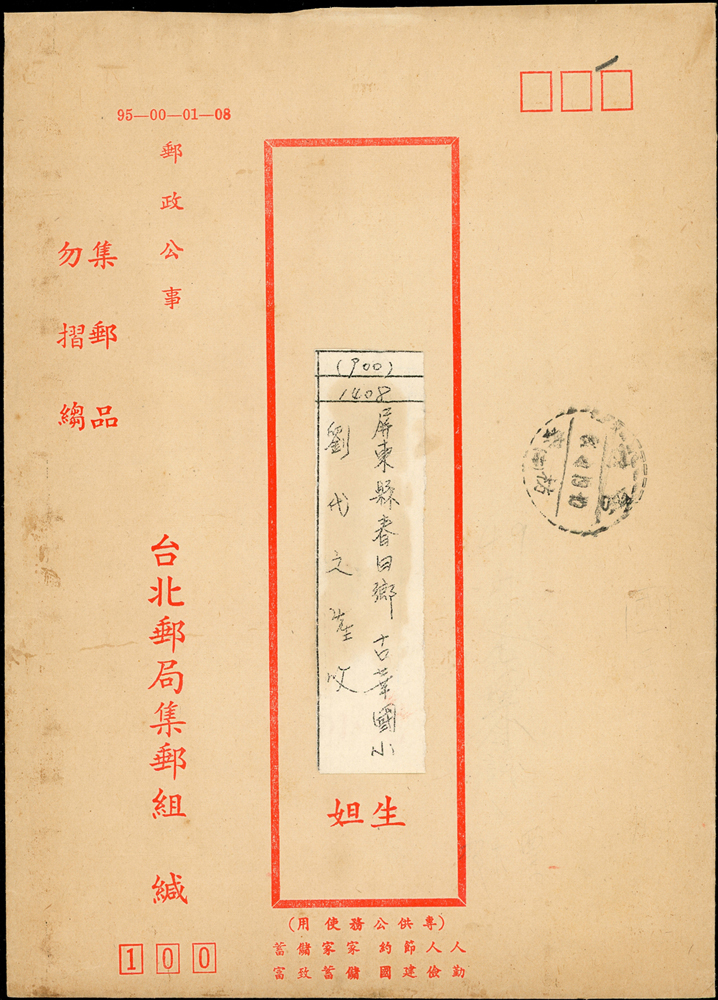 95—00—01—08
(900)
1408
屏東縣春日鄉 古華國小
劉代文先生收
生
姐
郵政公事
集郵品
勿摺縐
台北郵局集郵組 緘
100
(專供公務使用)
人人節約 家家儲蓄
勤儉建國 儲蓄致富